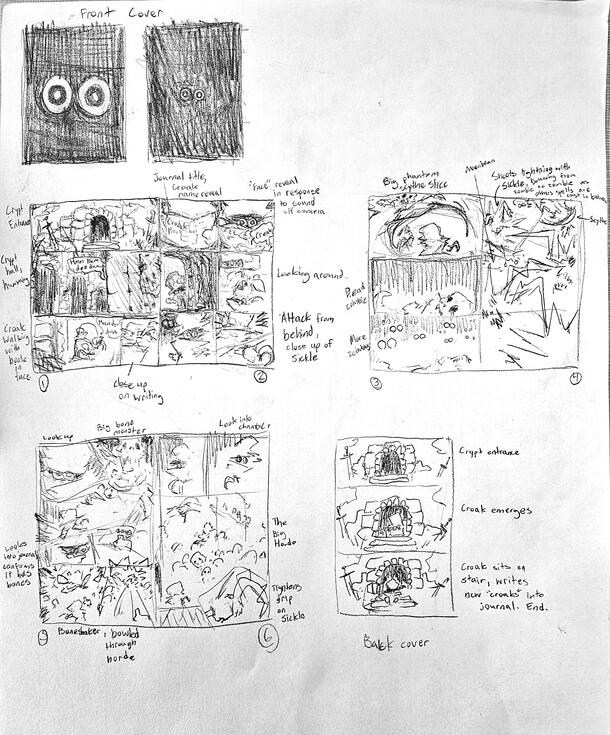 Front Cover
Journal title,
Croak
name reveal
"Face" reveal
in response
to sound
off camera
Crypt
Crypt
hall,
humming
Looking around.
Croak
walking
with
book
in
face
"Attack from
behind,
close up of
Sickle
close up
on writing
1
2
Big phantom
scythe slice
Shoots lightning with
sickle, bouncing from
zombie to zombie as
Scythe
More
zombies
3
4
Look up
Big bone
monster
Look into
chamber
Looks
into journal
confirms
it has
bones
The
Big
Horde
Tightens
grip
on
Sickle
, bowled
through
horde
5
6
Crypt entrance
Croak emerges
Croak sits on
stair, writes
new "croaks" into
journal. End.
Back cover